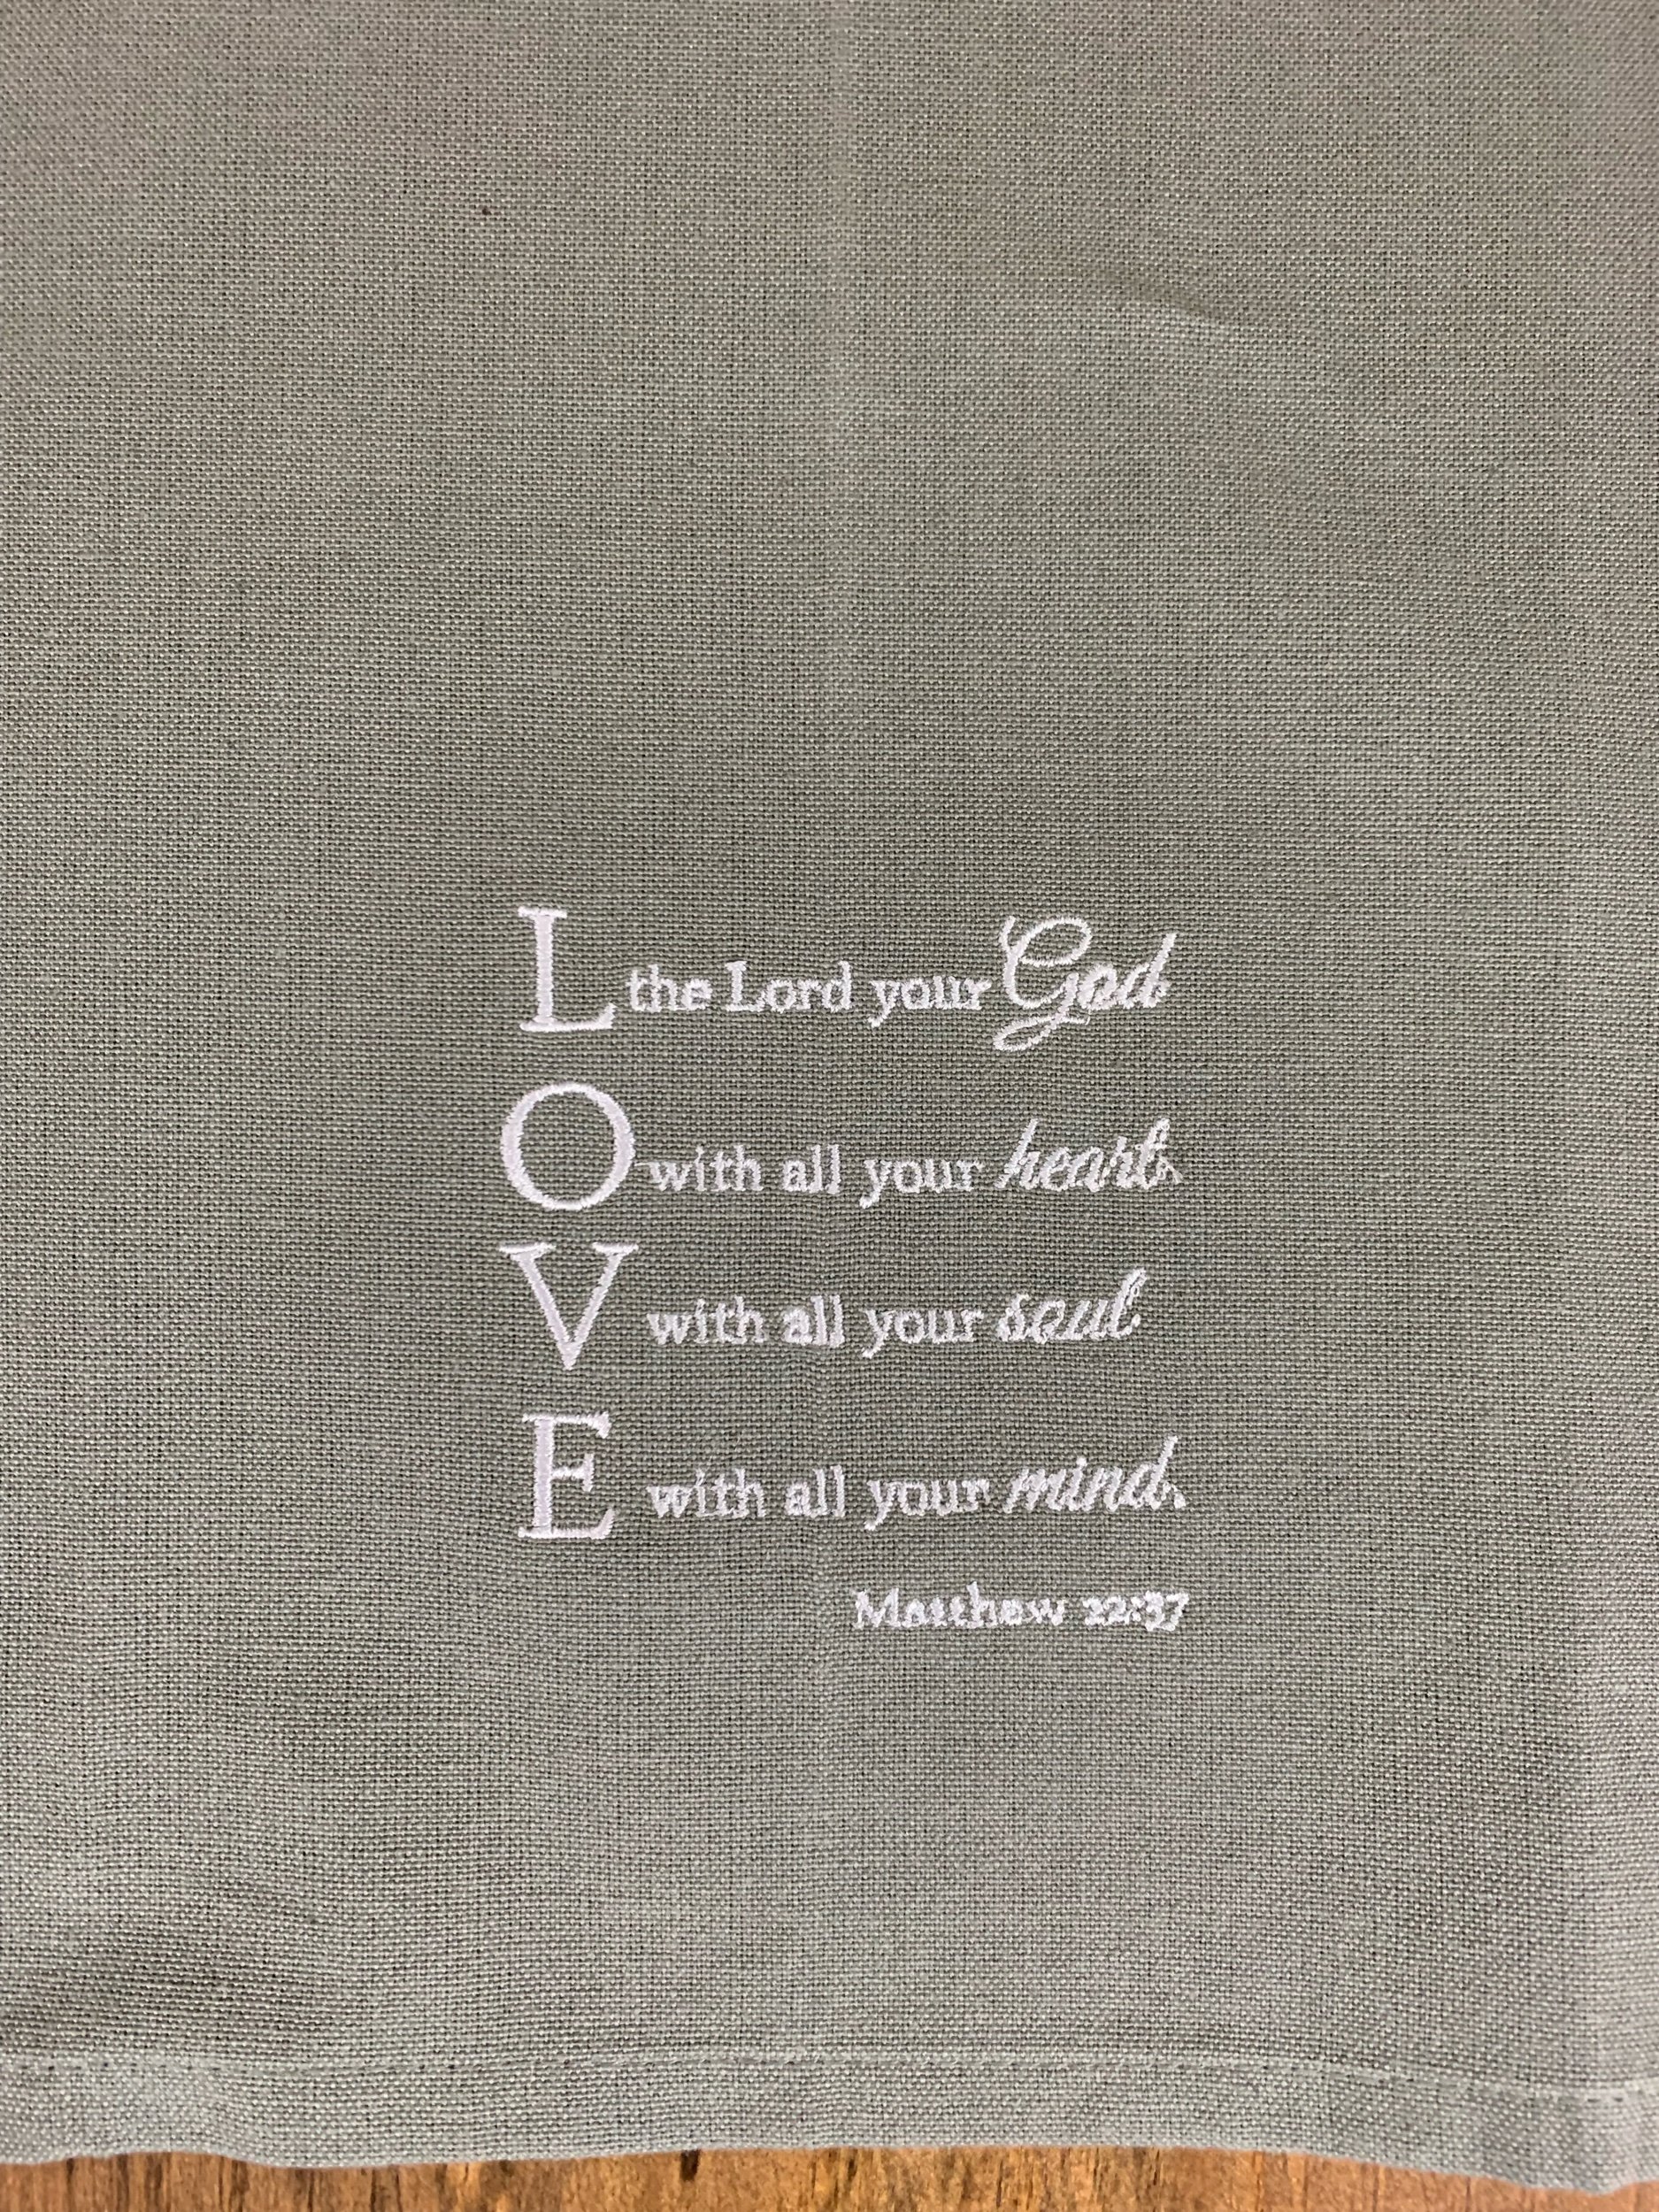 L the Lord your God
O with all your heart,
V with all your soul
E with all your mind.
Matthew 22:37